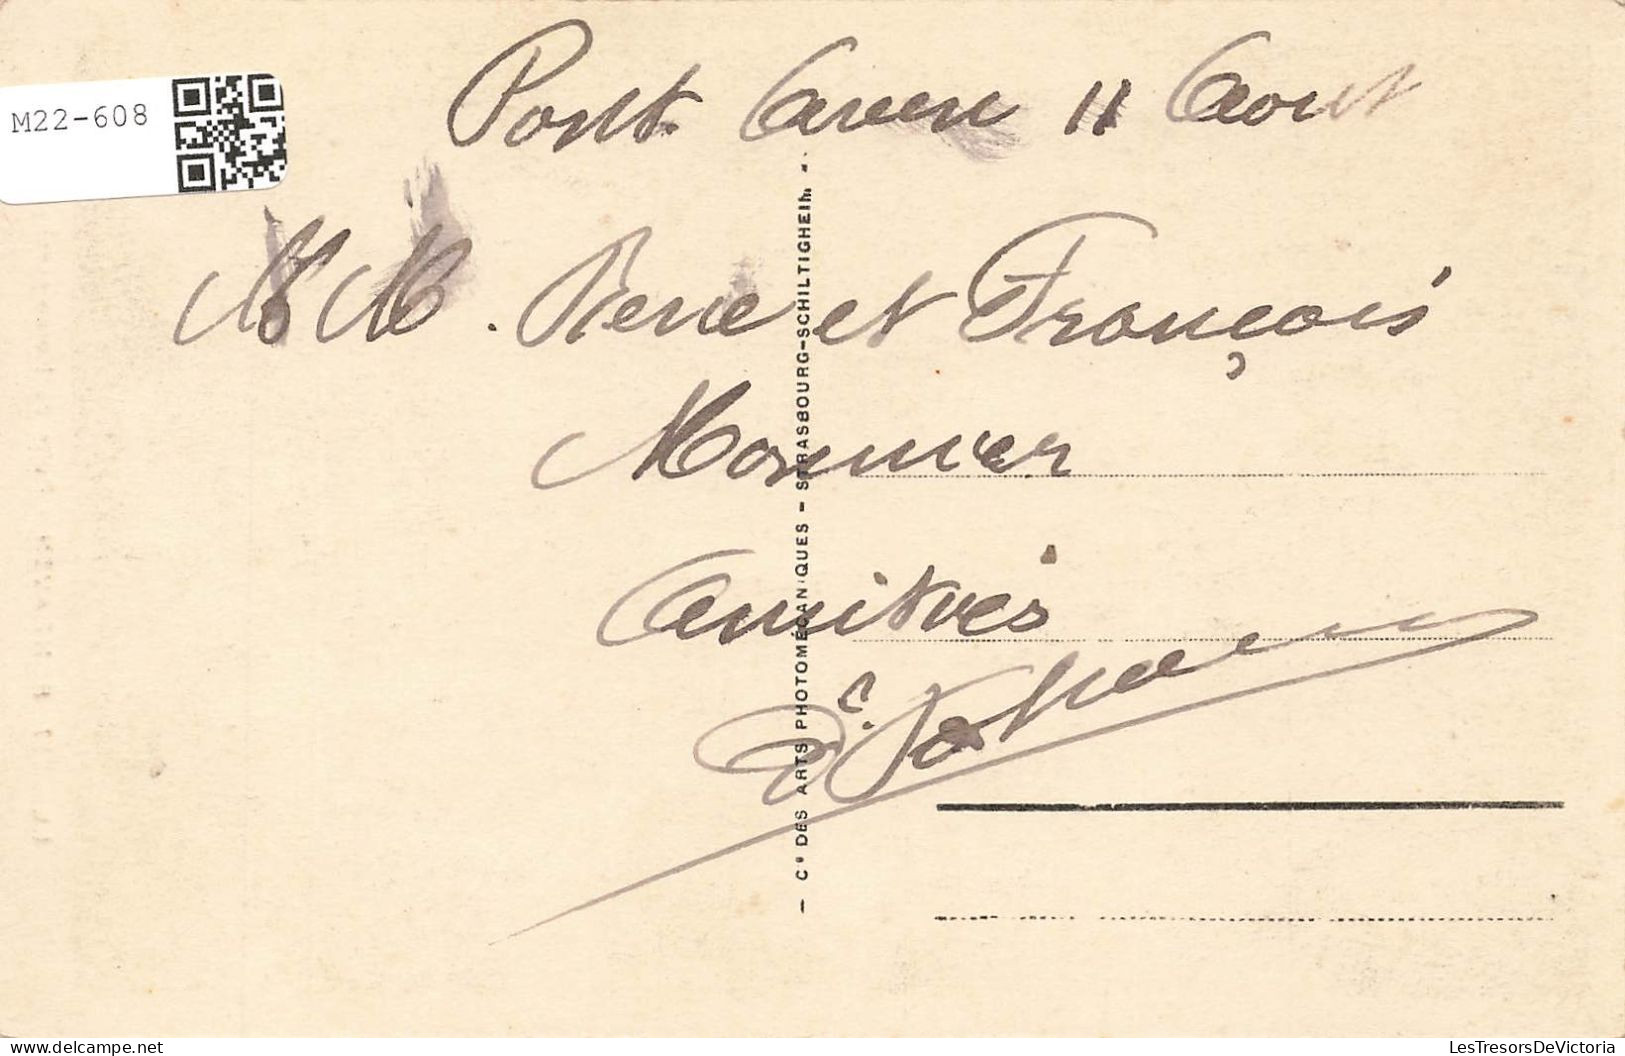 M22-608
Pont-Aven 11 Aout
MM. Pierre et François
Monnier
Amitiés
Dr.
- Cie DES ARTS PHOTOMÉCANIQUES - STRASBOURG-SCHILTIGHEIM -
delcampe.net
LesTresorsDeVictoria